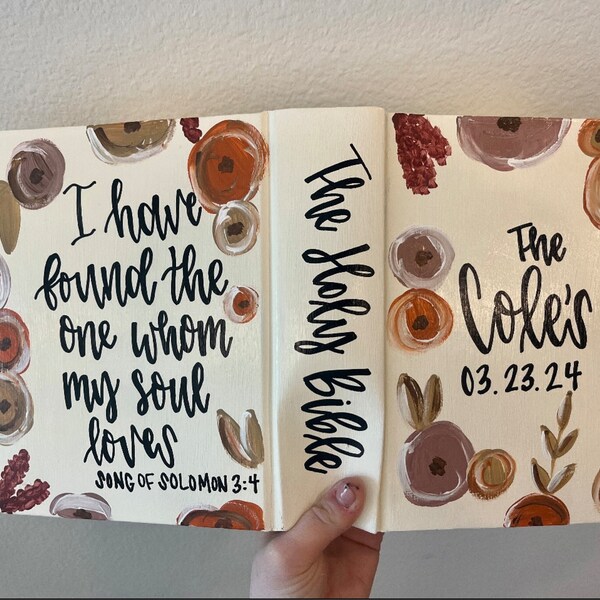 I have
found the
one whom
my soul
loves
SONG OF SOLOMON 3:4
The Holy Bible
The
Cole's
03.23.24